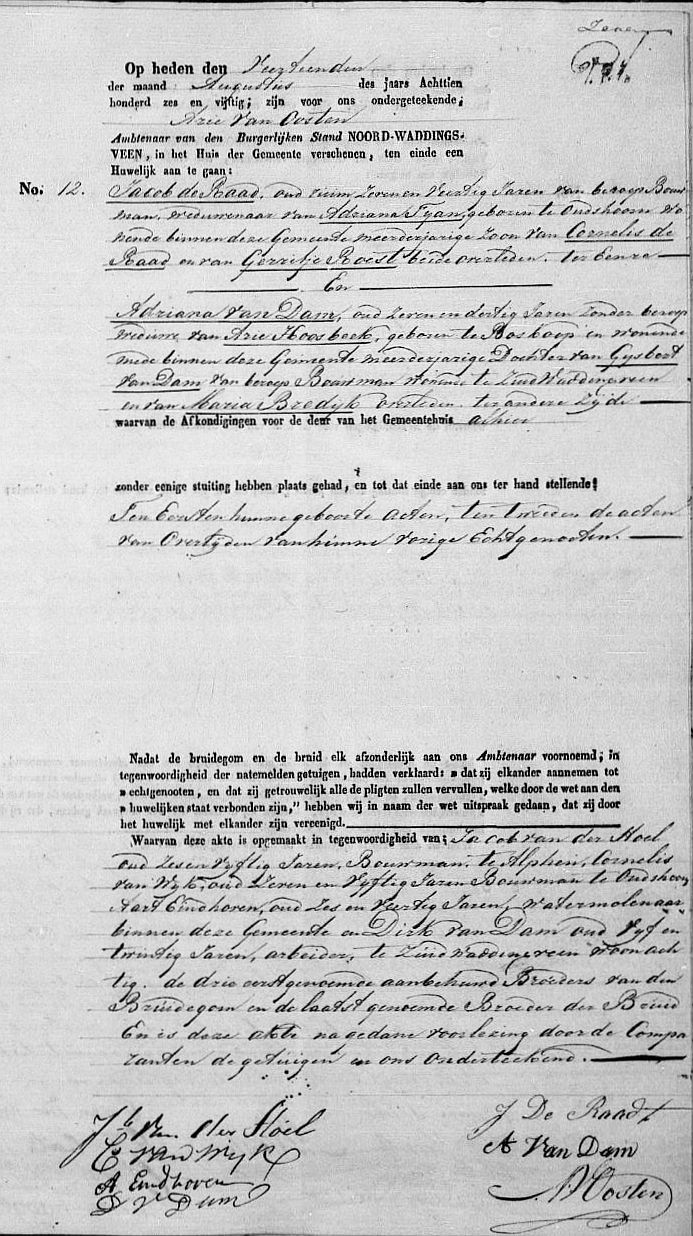 Zeven
Op heden den Veertienden
der maand Augustus des jaars Achttien
honderd zes en vijftig; zijn voor ons ondergeteekende;
Arie Van Oosten
Ambtenaar van den Burgerlijken Stand NOORD-WADDINGS-
VEEN, in het Huis der Gemeente verschenen, ten einde een
Huwelijk aan te gaan:
No. 12. Jacob de Raad, oud ruim Zeven en Veertig Jaren van beroep Bouw
man, Weduwenaar van Adriana Tyan, geboren te Oudshoorn wo
nende binnen deze Gemeente meerderjarige Zoon van Cornelis de
Raad en van Gerritje Roest beide overleden. ter Eenre
En
Adriana Van Dam, oud Zeven en dertig Jaren Zonder beroep
Weduwe van Arie Hoosbeek, geboren te Boskoop en wonende
mede binnen deze Gemeente meerderjarige Dochter van Gysbert
Van Dam Van beroep Bouwman wonende te Zuid Waddinxveen
en van Maria Bredijk overleden, ter andere Zijde
waarvan de Afkondigingen voor de deur van het Gemeentehuis alhier
zonder eenige stuiting hebben plaats gehad, en tot dat einde aan ons ter hand stellende:
Ten Eersten hunne geboorte acten, ten tweeden de acten
van Overlyden van hunne vorige Echtgenooten.
Nadat de bruidegom en de bruid elk afzonderlijk aan ons Ambtenaar voornoemd; in
tegenwoordigheid der natemelden getuigen, hadden verklaard: » dat zij elkander aannemen tot
» echtgenooten, en dat zij getrouwelijk alle de pligten zullen vervullen, welke door de wet aan den
» huwelijken staat verbonden zijn," hebben wij in naam der wet uitspraak gedaan, dat zij door
het huwelijk met elkander zijn vereenigd.
Waarvan deze akte is opgemaakt in tegenwoordigheid van; Jacob van der Hoel
oud Zes en Vyftig Jaren, Bouwman, te Alphen, Cornelis
Van Wyk, oud Zeven en Vyftig Jaren Bouwman te Oudshoorn
Aart Eindhoven, oud Zes en Veertig Jaren, Watermolenaar
binnen deze Gemeente en Dirk Van Dam oud Vyf en
twintig Jaren, arbeider, te Zuid Waddinxveen Woonach
tig. de drie eerstgenoemde aanbehuwd Broeders van den
Bruidegom en de laatst genoemde Broeder der Bruid
En is deze akte na gedane Voorlezing door de Compa
ranten de getuigen en ons Onderteekend.
Jb Van der Hoel
C Van Wyk
A Eindhoven
D V Dam
J De Raadt
A Van Dam
A V Oosten